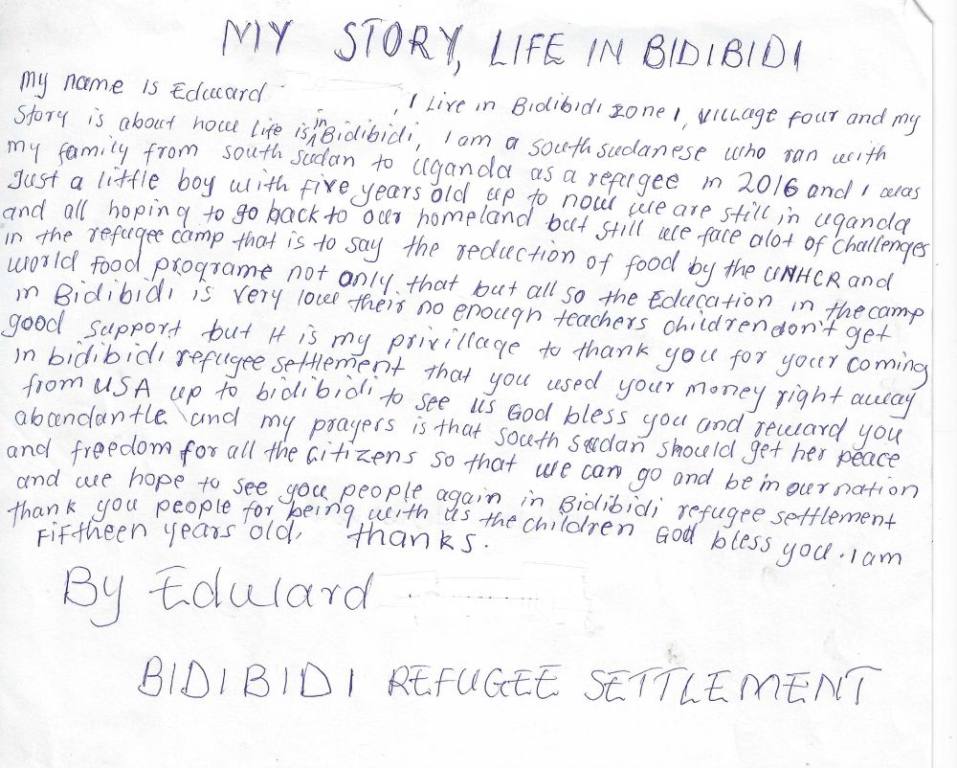 MY STORY, LIFE IN BIDIBIDI
My name is Edward , I Live in Bidibidi zone 1, village four and my
Story is about how life is in Bidibidi, I am a south sudanese who ran with
my family from south sudan to uganda as a refugee in 2016 and I was
Just a little boy with five years old up to now we are still in uganda
and all hoping to go back to our homeland but still we face alot of challenges
in the refugee camp that is to say the reduction of food by the UNHCR and
world food programe not only that but all so the Education in the camp
in Bidibidi is very low their no enough teachers children don't get
good support but it is my privillage to thank you for your coming
in bidibidi refugee settlement that you used your money right away
from USA up to bidibidi to see us God bless you and reward you
abandantle and my prayers is that south sudan should get her peace
and freedom for all the citizens so that we can go and be in our nation
and we hope to see you people again in Bidibidi refugee settlement
thank you people for being with us the children God bless you. I am
Fiftheen years old, thanks.
By Edward
BIDIBIDI REFUGEE SETTLEMENT